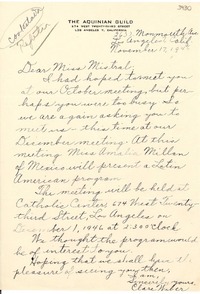 contestada
THE AQUINIAN GUILD
674 WEST TWENTY-THIRD STREET
LOS ANGELES 7, CALIFORNIA
Monmouth Ave
Los Angeles, Calif
November 17, 1946
Dear Miss Mistral,
I had hoped to meet you
at our October meeting, but per-
haps you were too busy. So
we are again asking you to
meet us this time at our
December meeting. At this
meeting Miss Amalia Millan
of Mexico will present a Latin
American program.
The meeting will be held at
Catholic Center, 674 West Twenty-
third Street, Los Angeles on
December 1, 1946 at 2:30 o'clock
We thought the program would
be of interest to you.
Hoping that we shall have the
pleasure of seeing you then,
I am,
Sincerely yours,
Clare Weber